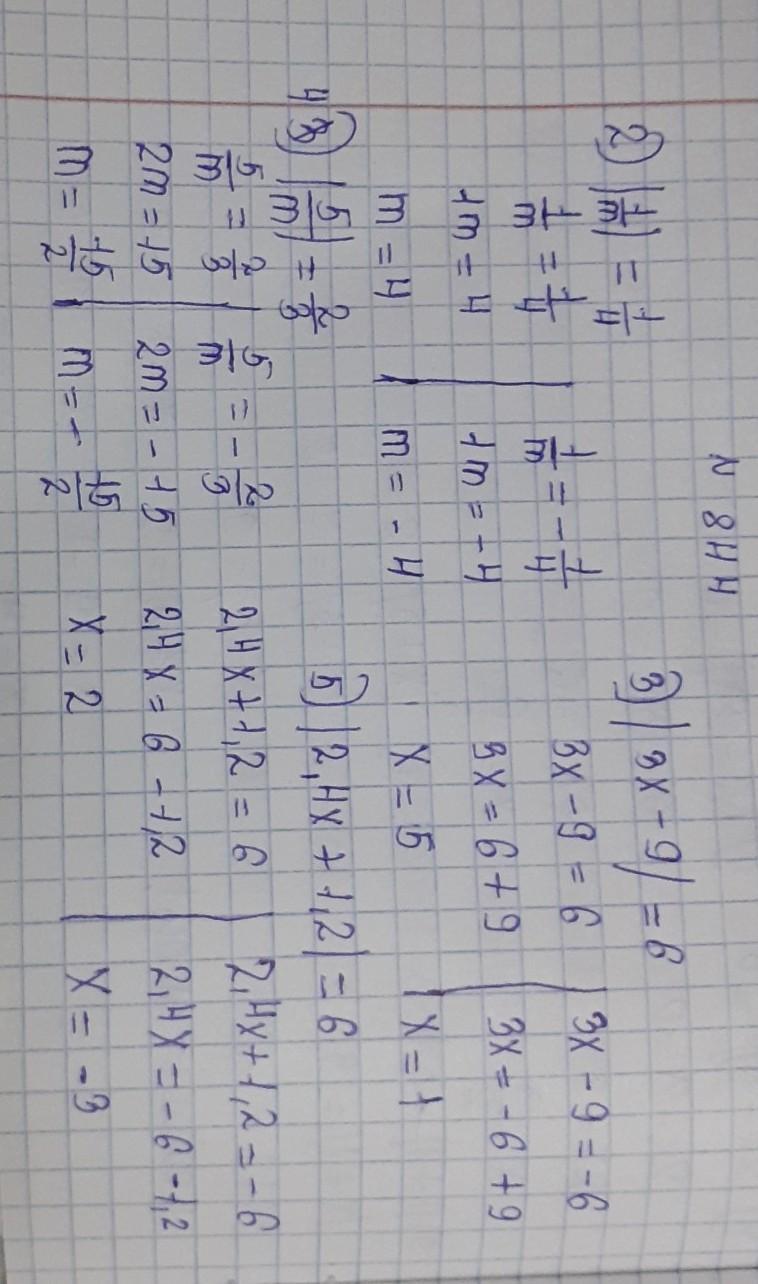 N 844
2) |1/m| = 1/4
1/m = 1/4 | 1/m = -1/4
1m = 4 | 1m = -4
m = 4 | m = -4
3) |3x - 9| = 6
3x - 9 = 6 | 3x - 9 = -6
3x = 6 + 9 | 3x = -6 + 9
x = 5 | x = 1
4) |5/m| = 2/3
5/m = 2/3 | 5/m = -2/3
2m = 15 | 2m = -15
m = 15/2 | m = -15/2
5) |2,4x + 1,2| = 6
2,4x + 1,2 = 6 | 2,4x + 1,2 = -6
2,4x = 6 - 1,2 | 2,4x = -6 - 1,2
x = 2 | x = -3